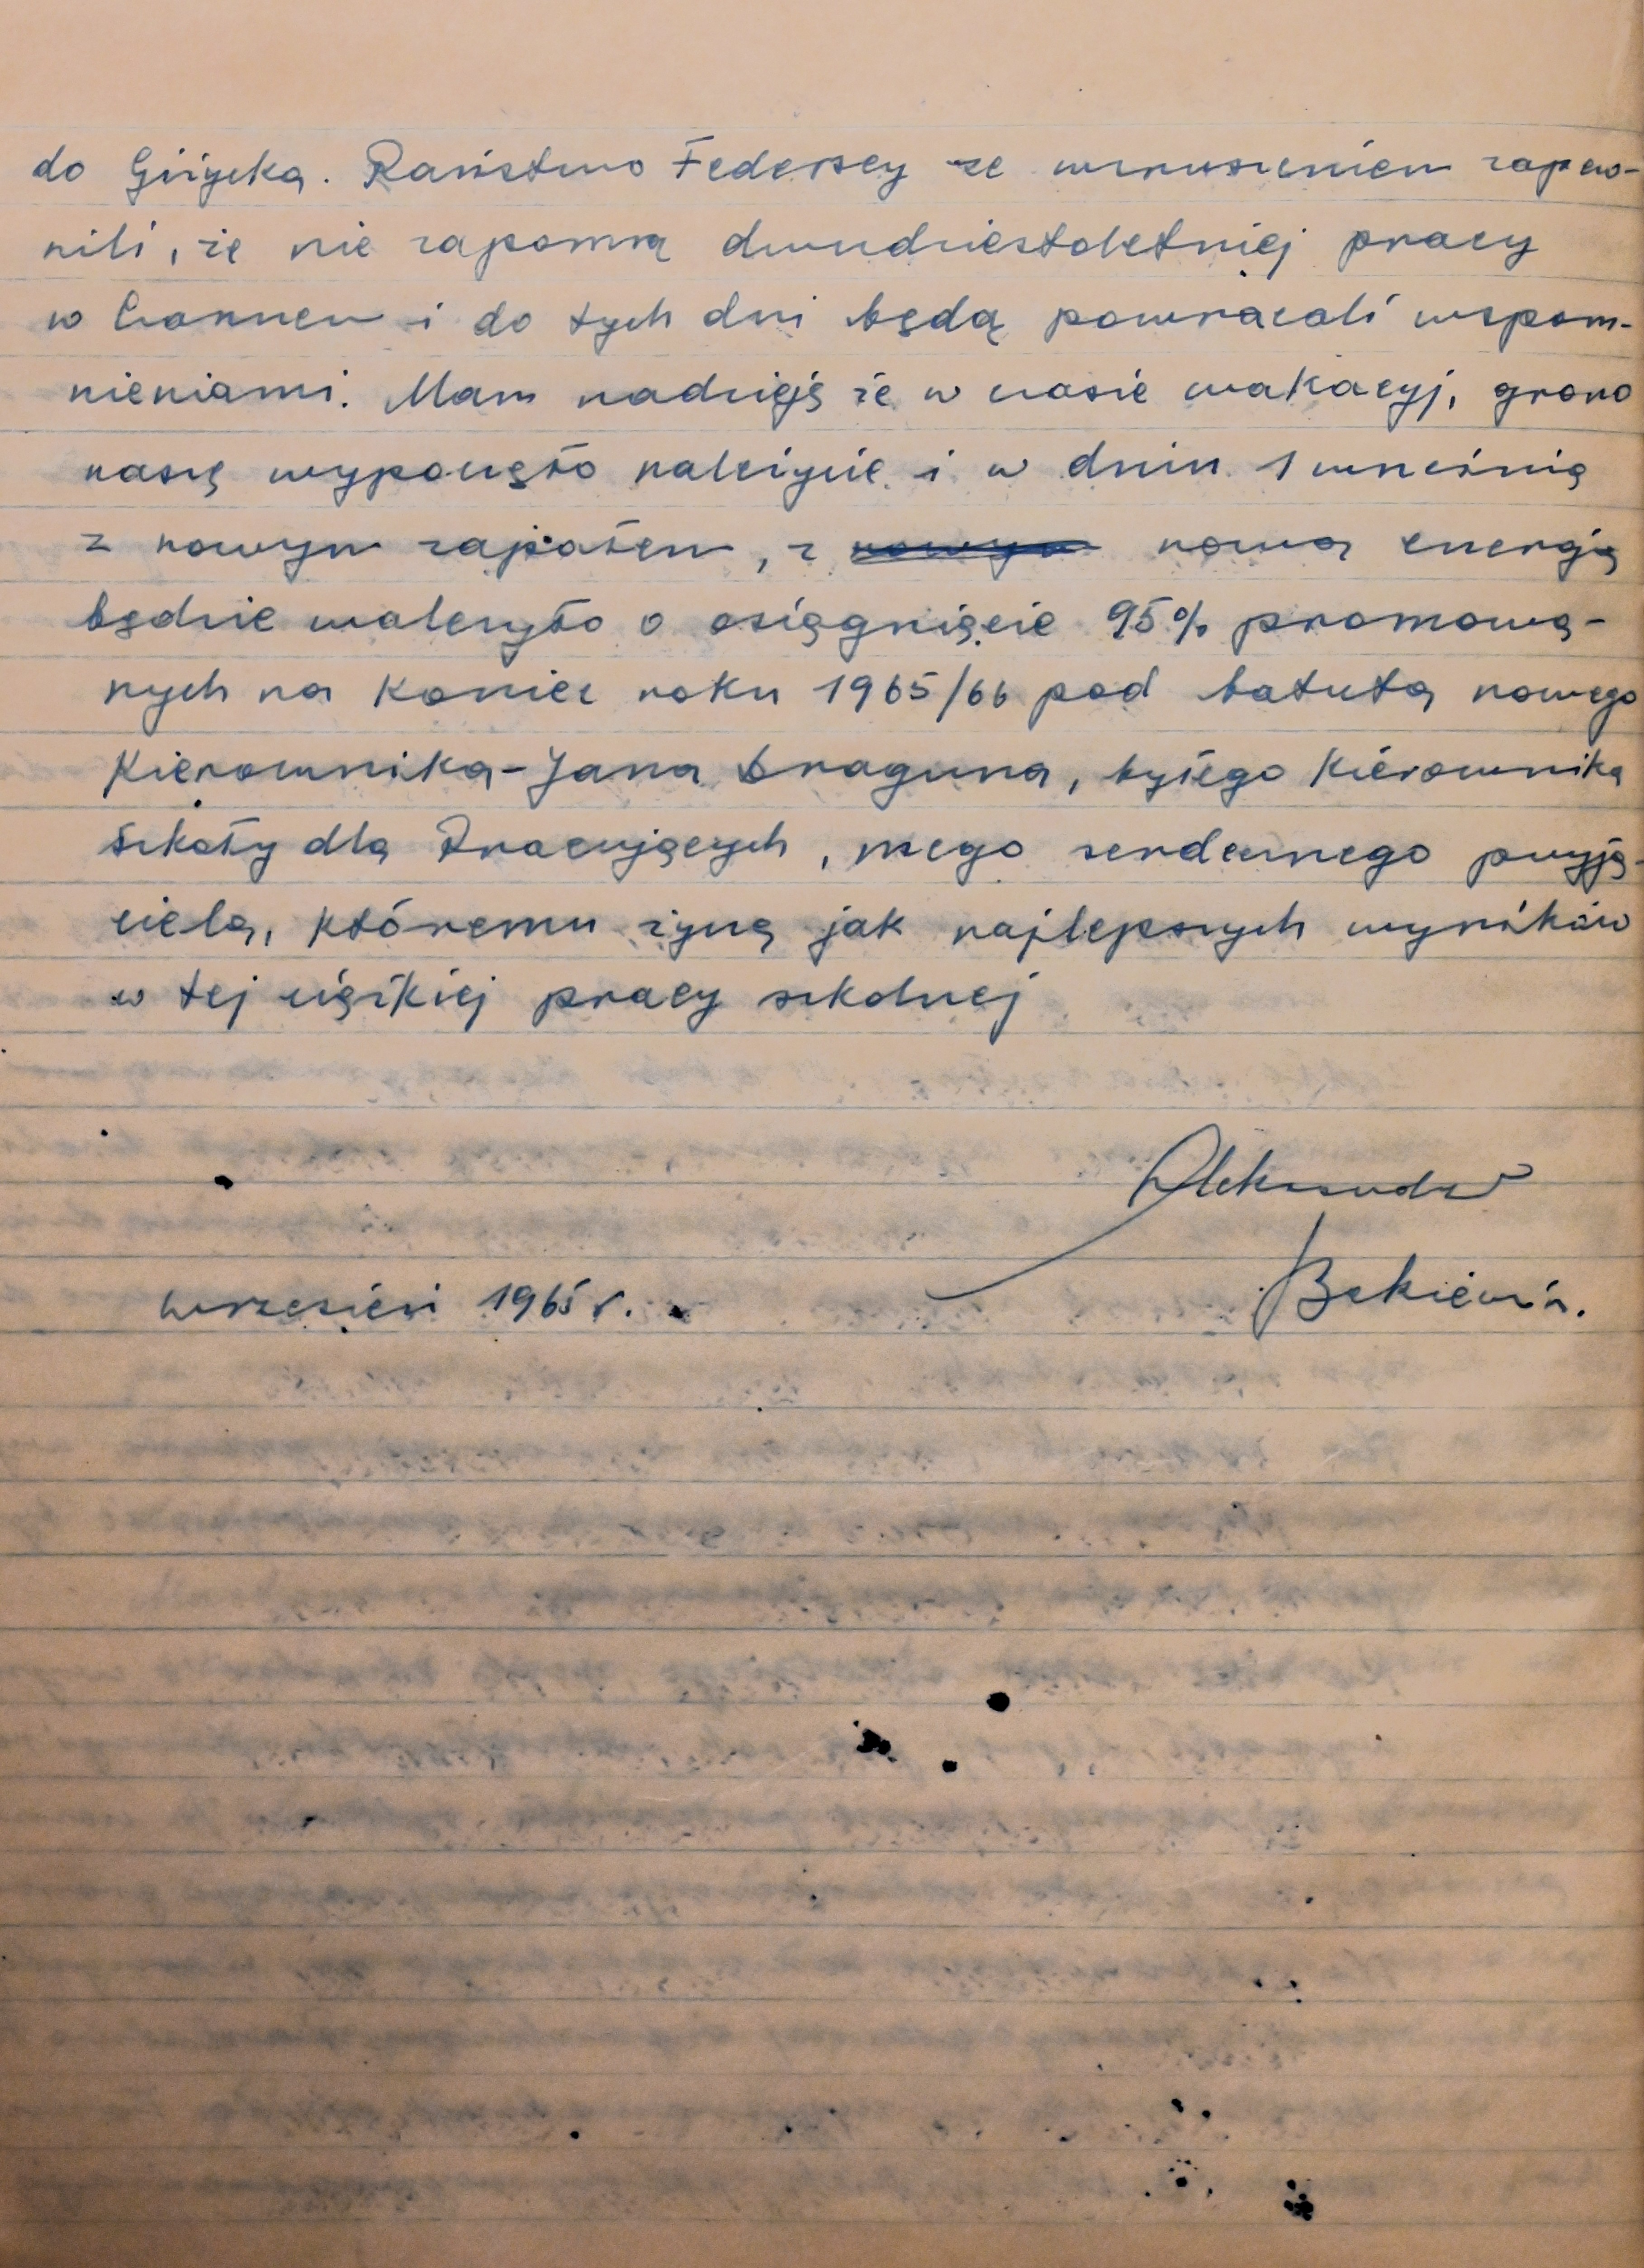 do Giżycka. Państwo Federsey ze wzruszeniem zapew-
nili, że nie zapomną dwudziestoletniej pracy
w Czarnem i do tych dni będą powracali wspom-
nieniami. Mam nadzieję że w czasie wakacyj, grono
nasze wypoczęło należycie i w dniu 1 września
z nowym zapałem, z nową energią
będzie walczyło o osiągnięcie 95% promowa-
nych na koniec roku 1965/66 pod batutą nowego
Kierownika-Jana Draguna, byłego Kierownika
Szkoły dla Pracujących, mego serdecznego przyja-
ciela, któremu życzę jak najlepszych wyników
w tej ciężkiej pracy szkolnej
Aleksander
wrzesień 1965 r.